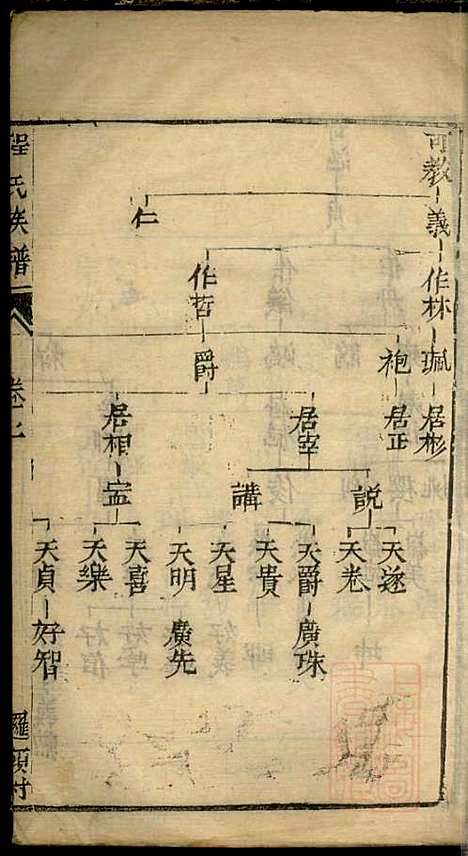 可教 義 仁
作林 作哲
珮 袍 爵
居彬 居正 居宰 居相
説 講 寍
天遂 天卷 天爵 天貴 天星 天明 天喜 天樂 天貞
廣珠 廣先 好智
程氏族譜
卷七
羅頭村